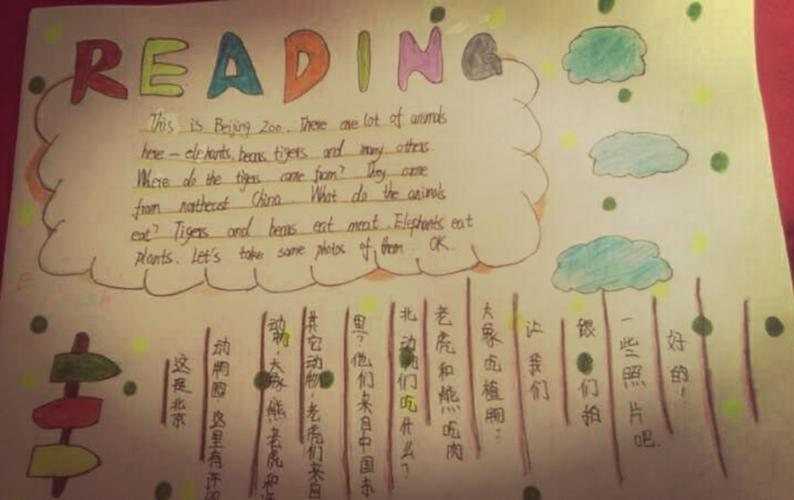 READING
This is Beijing Zoo. There are lot of animals
here - elephants, bears, tigers and many others.
Where do the tigers come from? They come
from northeast China. What do the animals
eat? Tigers and bears eat meat. Elephants eat
plants. Let's take some photos of them. OK.
这是北京
动物园.这里有许
动物,大象,熊老虎和
其它动物.老虎们来自
里?他们来自中国东
北.动物们吃什么?
老虎和熊吃肉
大象吃植物.
让我们
们拍
一些照片吧.
好的!